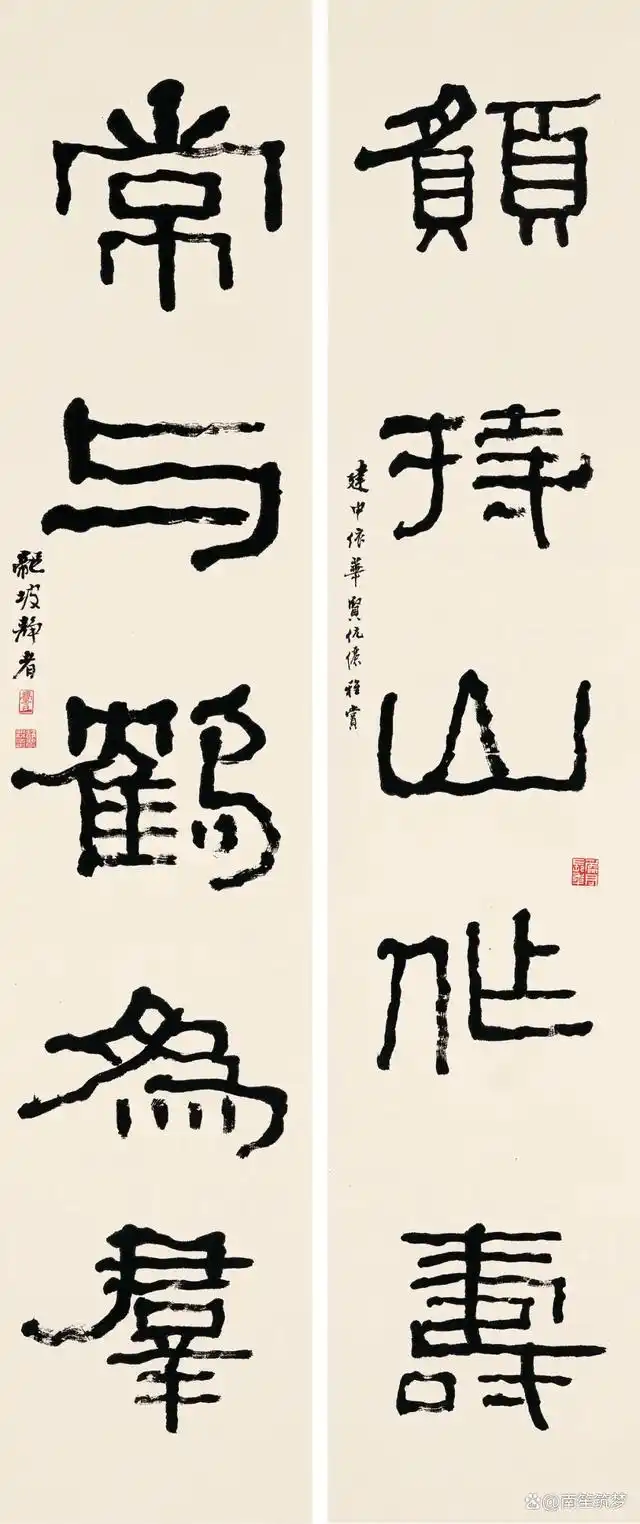 願持山作壽
建中依華賢伉儷雅賞
常与鶴為羣
龍坡靜者
@南笙筑梦